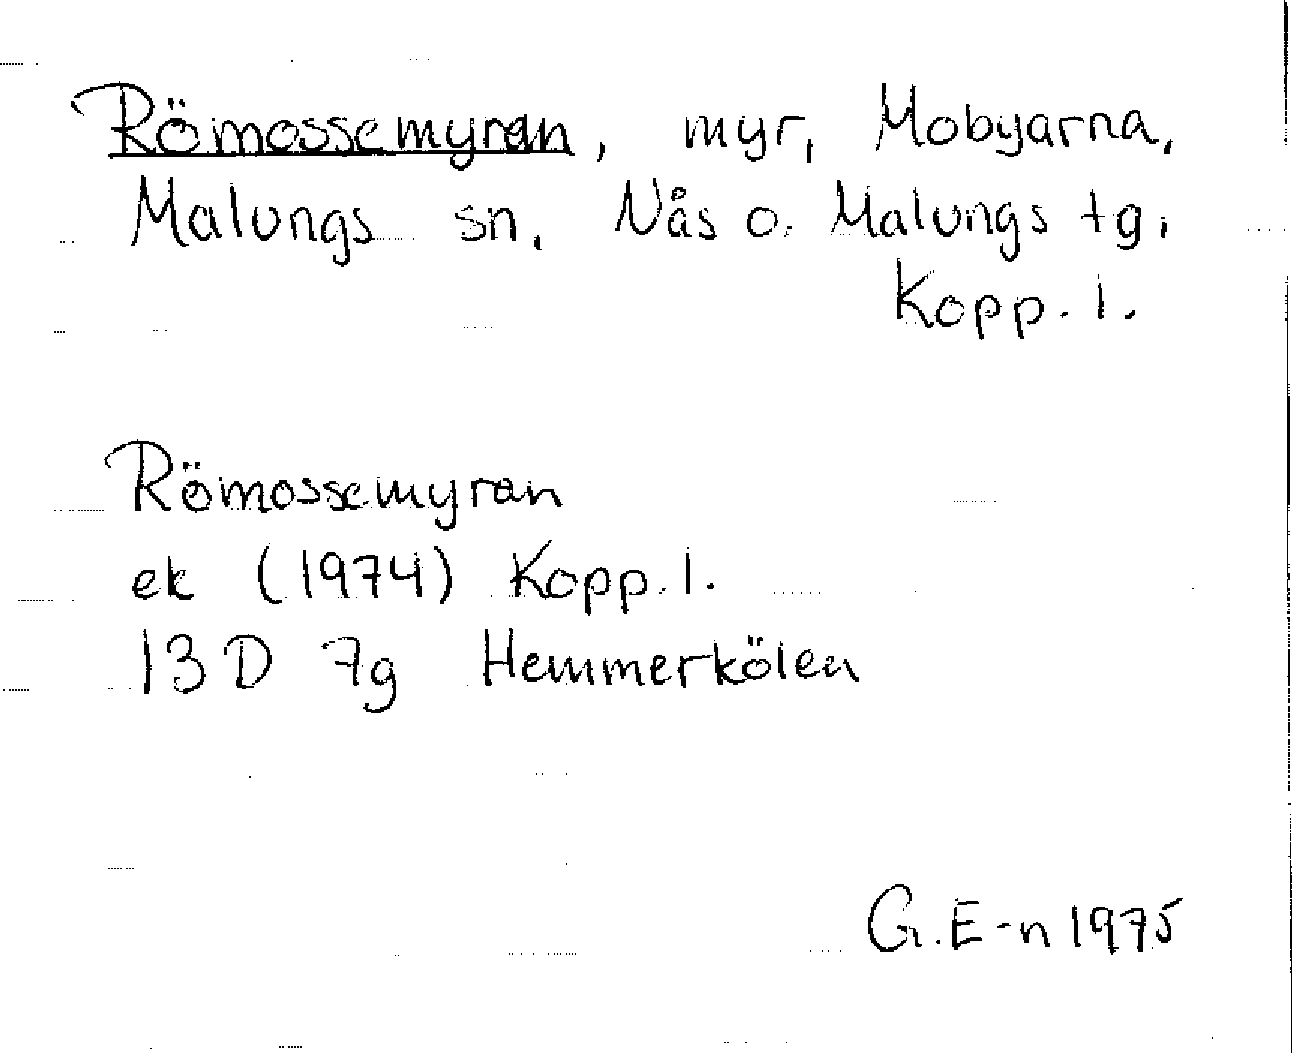 Römossemyran, myr, Mobyarna,
Malungs sn. Nås o. Malungs tg.
Kopp. l.
Römossemyran
ek (1974) Kopp. l.
13 D 7g Hemmerkölen
G. E-n 1975